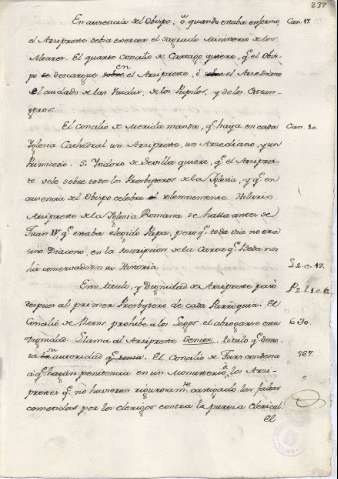 237
En ausencia del Obispo, ò quando estaba enfermo, Can. 17.
el Arzipreste debia exercer el sagrado ministerio de los
Altares. El quarto concilio de Cartago quiere, qᵉ el Obis-
po descargue en el Arzipreste, ò en el Arzediano
el cuidado de las Viudas, de los Pupilos, y de los Estran-
geros.
El Concilio de Merida manda, qᵉ haya en cada Can. 10.
Iglesia Cathedral un Arzipreste, un Arzediano, y un
Primicerio. S. Ysidoro de Sevilla quiere, qᵉ el Arzipres-
te vele sobre todos los Presbyteros de la Iglesia, y qᵉ en
ausencia del Obispo celebre solemnemente. Hilario
Arzipreste de la Iglesia Romana se halla antes de
Juan IVº qᵉ estaba elegido Papa, pero qᵉ todavia no era
sino Diacono, en la inscripcion de la Carta qᵉ Beda nos
ha conservado en su Historia. L. 2. c. 19.
Este titulo, y dignidad de Arzipreste pasó
despues al primer Presbytero de cada Parroquia. El
Concilio de Rems prohibe à los Legos el abrogarse esta
dignidad. Llama al Arzipreste
ta su autoridad. El Concilio de Tours condena 567.
à qᵉ hagan penitencia en un Monasterio los Arzi-
prestes qᵉ no huvieren rigurosamᵗᵉ castigado las faltas
cometidas por los clerigos contra la pureza Clerical.
el